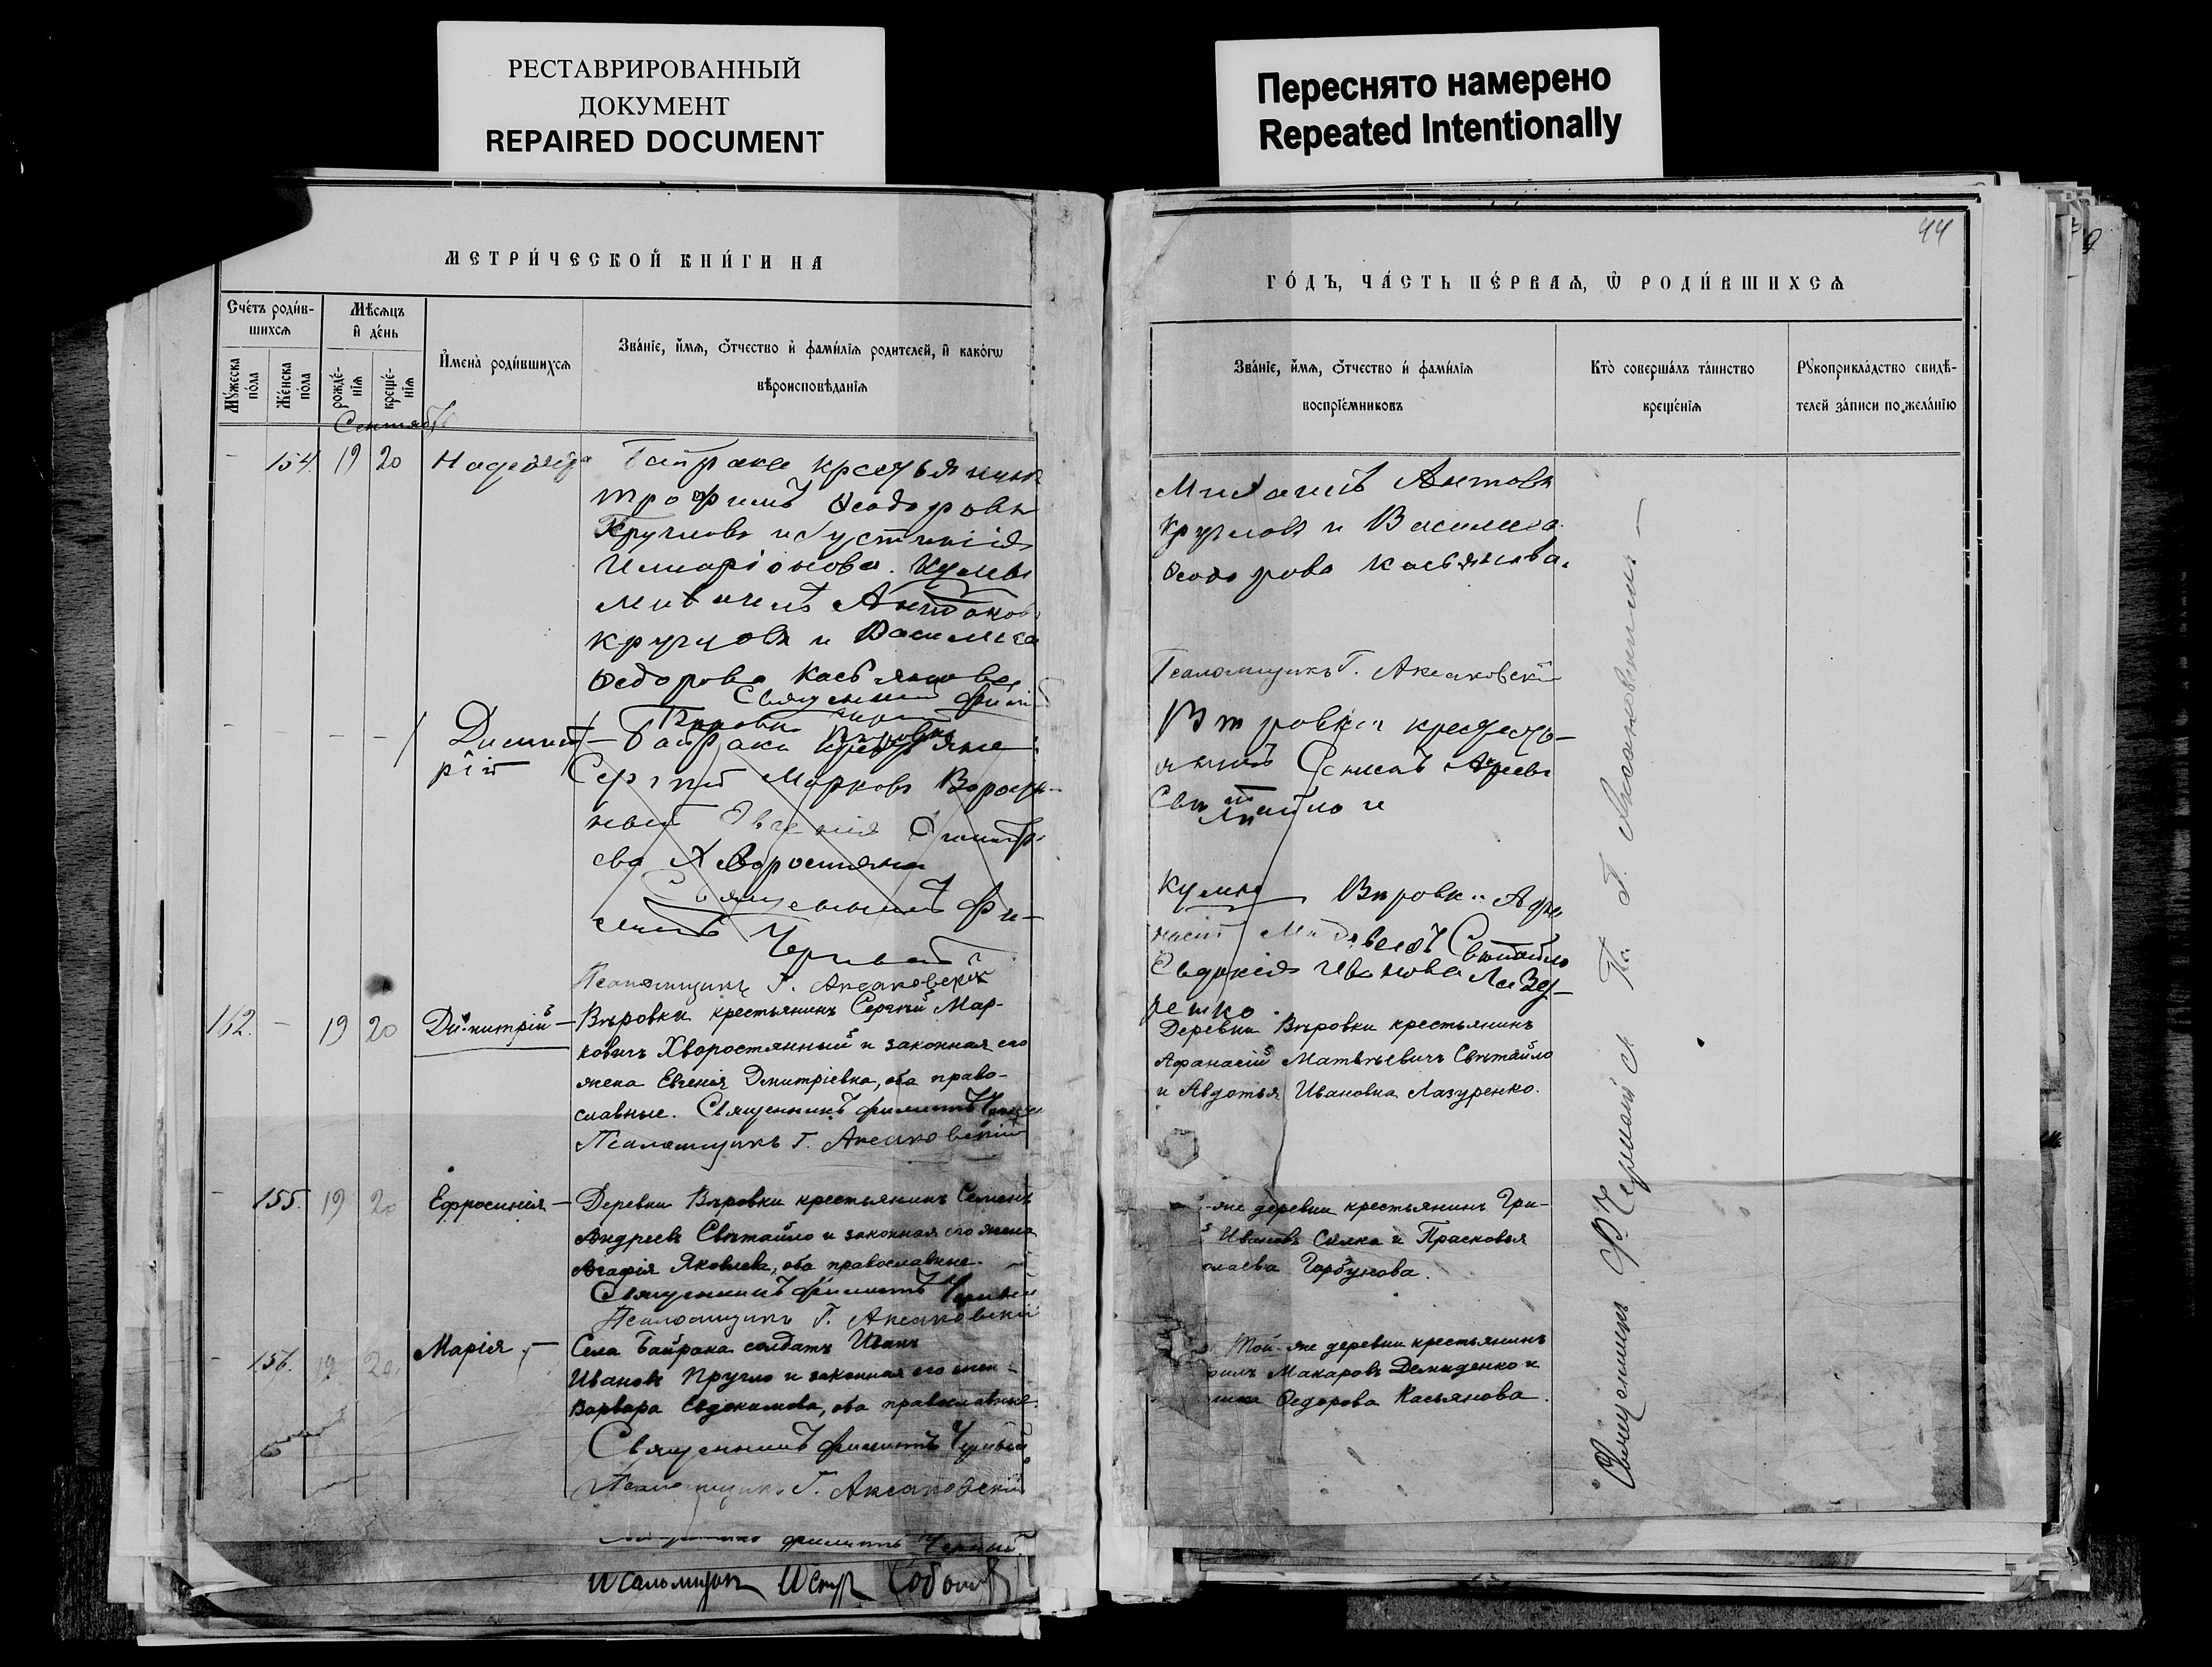 РЕСТАВРИРОВАННЫЙ
ДОКУМЕНТ
REPAIRED DOCUMENT
Переснято намерено
Repeated Intentionally
МЕТРИ́ЧЕСКОЙ КНИ́ГИ НА
Сче́тъ роди́в-
шихсѧ
Мѣсѧцъ
и҆ де́нь
Му́жеска
по́ла
Же́нска
по́ла
рожде́-
нїѧ
креще́-
нїѧ
И҆мена̀ роди́вшихсѧ
Зва́нїе, и҆́мѧ, ѻ҆́тчество и҆ фами́лїѧ родителей, и҆ како́гѡ
вѣроисповѣданїѧ
Сентябрь
154. 19 20 Надежда
Байрака крестьянинъ
Трофимъ Ѳеодоровъ
Кругловъ и Устинія
Иларіонова. Кумы
Михаилъ Антонов
Кругловъ и Василиса
Ѳедорова Касьянова
Димит-
рій
Байрака
Сергій Марковъ
Евгенія Димитрі
ева Хворостяна
Священникъ Фи-
липпъ Черный
Псаломщикъ Г. Аксаковскій
162. - 19 20 Димитрій - Вѣровки крестьянинъ Сергій Мар-
ковичъ Хворостянный и законная его
жена Евгенія Дмитріевна, оба право-
славные. Священникъ Филиппъ Черный
Псаломщикъ Г. Аксаковскій
- 155. 19 20 Ефросинія - Деревни Вѣровки крестьянинъ Семенъ
Андреевъ Свѣтайло и законная его жена
Агафія Яковлева, оба православные.
Священникъ Филиппъ Черный
Псаломщикъ Г. Аксаковскій
- 156. 19 20. Марія, - Села Байрака солдатъ Иванъ
Ивановъ Кругло и законная его жен-
Варвара Евдокимова, оба православные
Священникъ Филиппъ Черный
Псаломщикъ Г. Аксаковскій
Филиппъ Черный
Псаломщик Петр
44
ГО́ДЪ, ЧА́СТЬ ПЕ́РВАѦ, Ѡ҆ РОДИ́ВШИХСѦ
Зва́нїе, и҆́мѧ, ѻ҆́тчество и҆ фами́лїѧ
воспрїе́мниковъ
Кто̀ соверша́лъ та́инство
креще́нїѧ
Рꙋкоприкла́дство свидѣ-
телей за́писи по жела́нїю
Михаилъ Антоновъ
Кругловъ и Василиса
Ѳеодорова Касьянова.
Псаломщикъ Г. Аксаковскій
Вѣровки кресть-
янинъ Семенъ Андреевъ
Свѣтайло и
Кумы Вѣровки Афа
насій Матвѣевъ Свѣтайло
Евдокія Иванова Лазу-
ренко.
Деревни Вѣровки крестьянинъ
Афанасій Матвѣевичъ Свѣтайло
и Авдотья Ивановна Лазуренко.
-же деревни крестьянинъ Гри-
й Ивановъ Силка и Прасковья
олаева Горбунова.
Той-же деревни крестьянинъ
илъ Макаровъ Демиденко и
Ѳедорова Касьянова.
Священникъ Ф. Черный и Пс. Г. Аксаковскимъ -